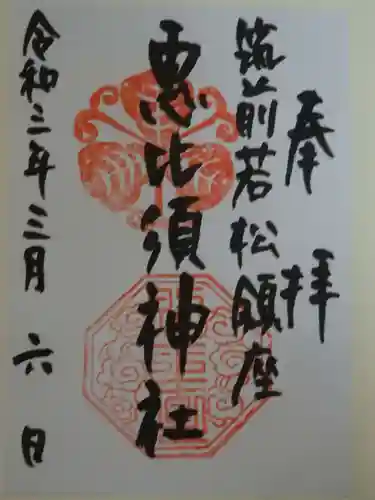 奉拝
筑前若松顔座
恵比須神社
令和三年三月六日